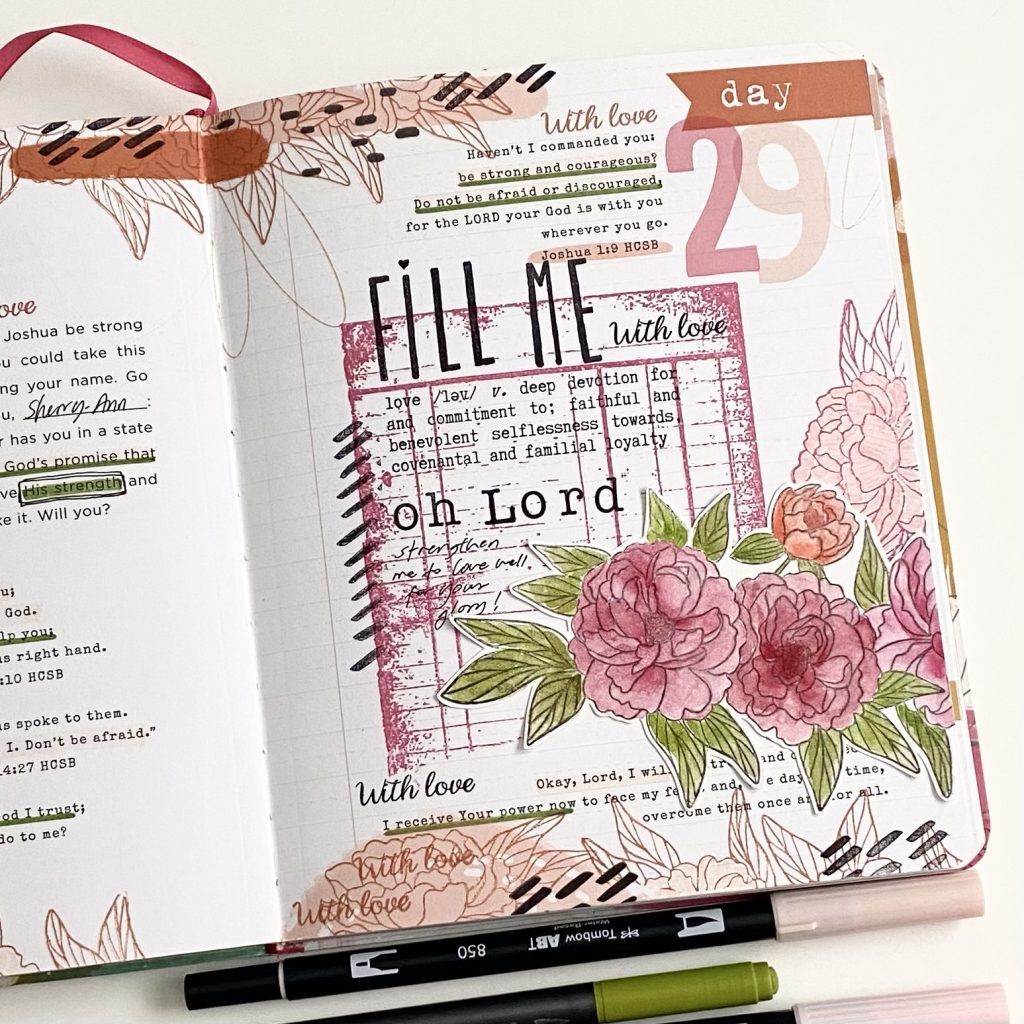 Joshua be strong
could take this
your name. Go
Sherry-Ann :
has you in a state
God's promise that
His strength and
it. Will you?
God.
you;
right hand.
:10 HCSB
spoke to them.
I. Don't be afraid."
4:27 HCSB
I trust;
do to me?
day
29
With love
Haven't I commanded you:
be strong and courageous?
Do not be afraid or discouraged,
for the LORD your God is with you
wherever you go.
Joshua 1:9 HCSB
FILL ME
With love
love /ləv/ v. deep devotion for
and commitment to; faithful and
benevolent selflessness towards;
covenantal and familial loyalty
oh Lord
strengthen
me to love well.
for your
glory!
With love
Okay, Lord, I will
I receive Your power now to face my time,
overcome them once all.
With love
With love
850
Tombow ABT
Water Based